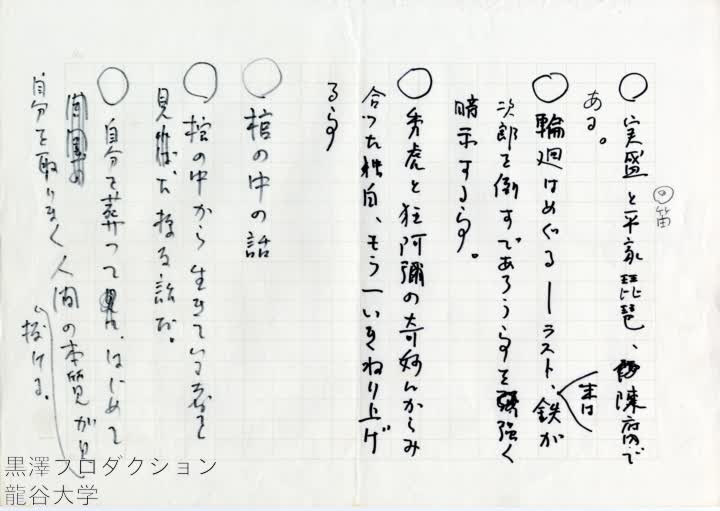 ◎笛
○実盛と平家琵琶、陳腐で
ある。
○輪廻はめぐる―ラスト、鉄が
末は
次郎を倒すであろう事を強く
暗示する事。
○秀虎と狂阿彌の奇妙にからみ
合った独白、もう一いきねり上げ
る事
○棺の中の話
○棺の中から生きている姿を
見た様な話だ。
○自分を葬って、はじめて
自分を取りまく人間の本質が見
抜ける。
黒澤プロダクション
龍谷大学